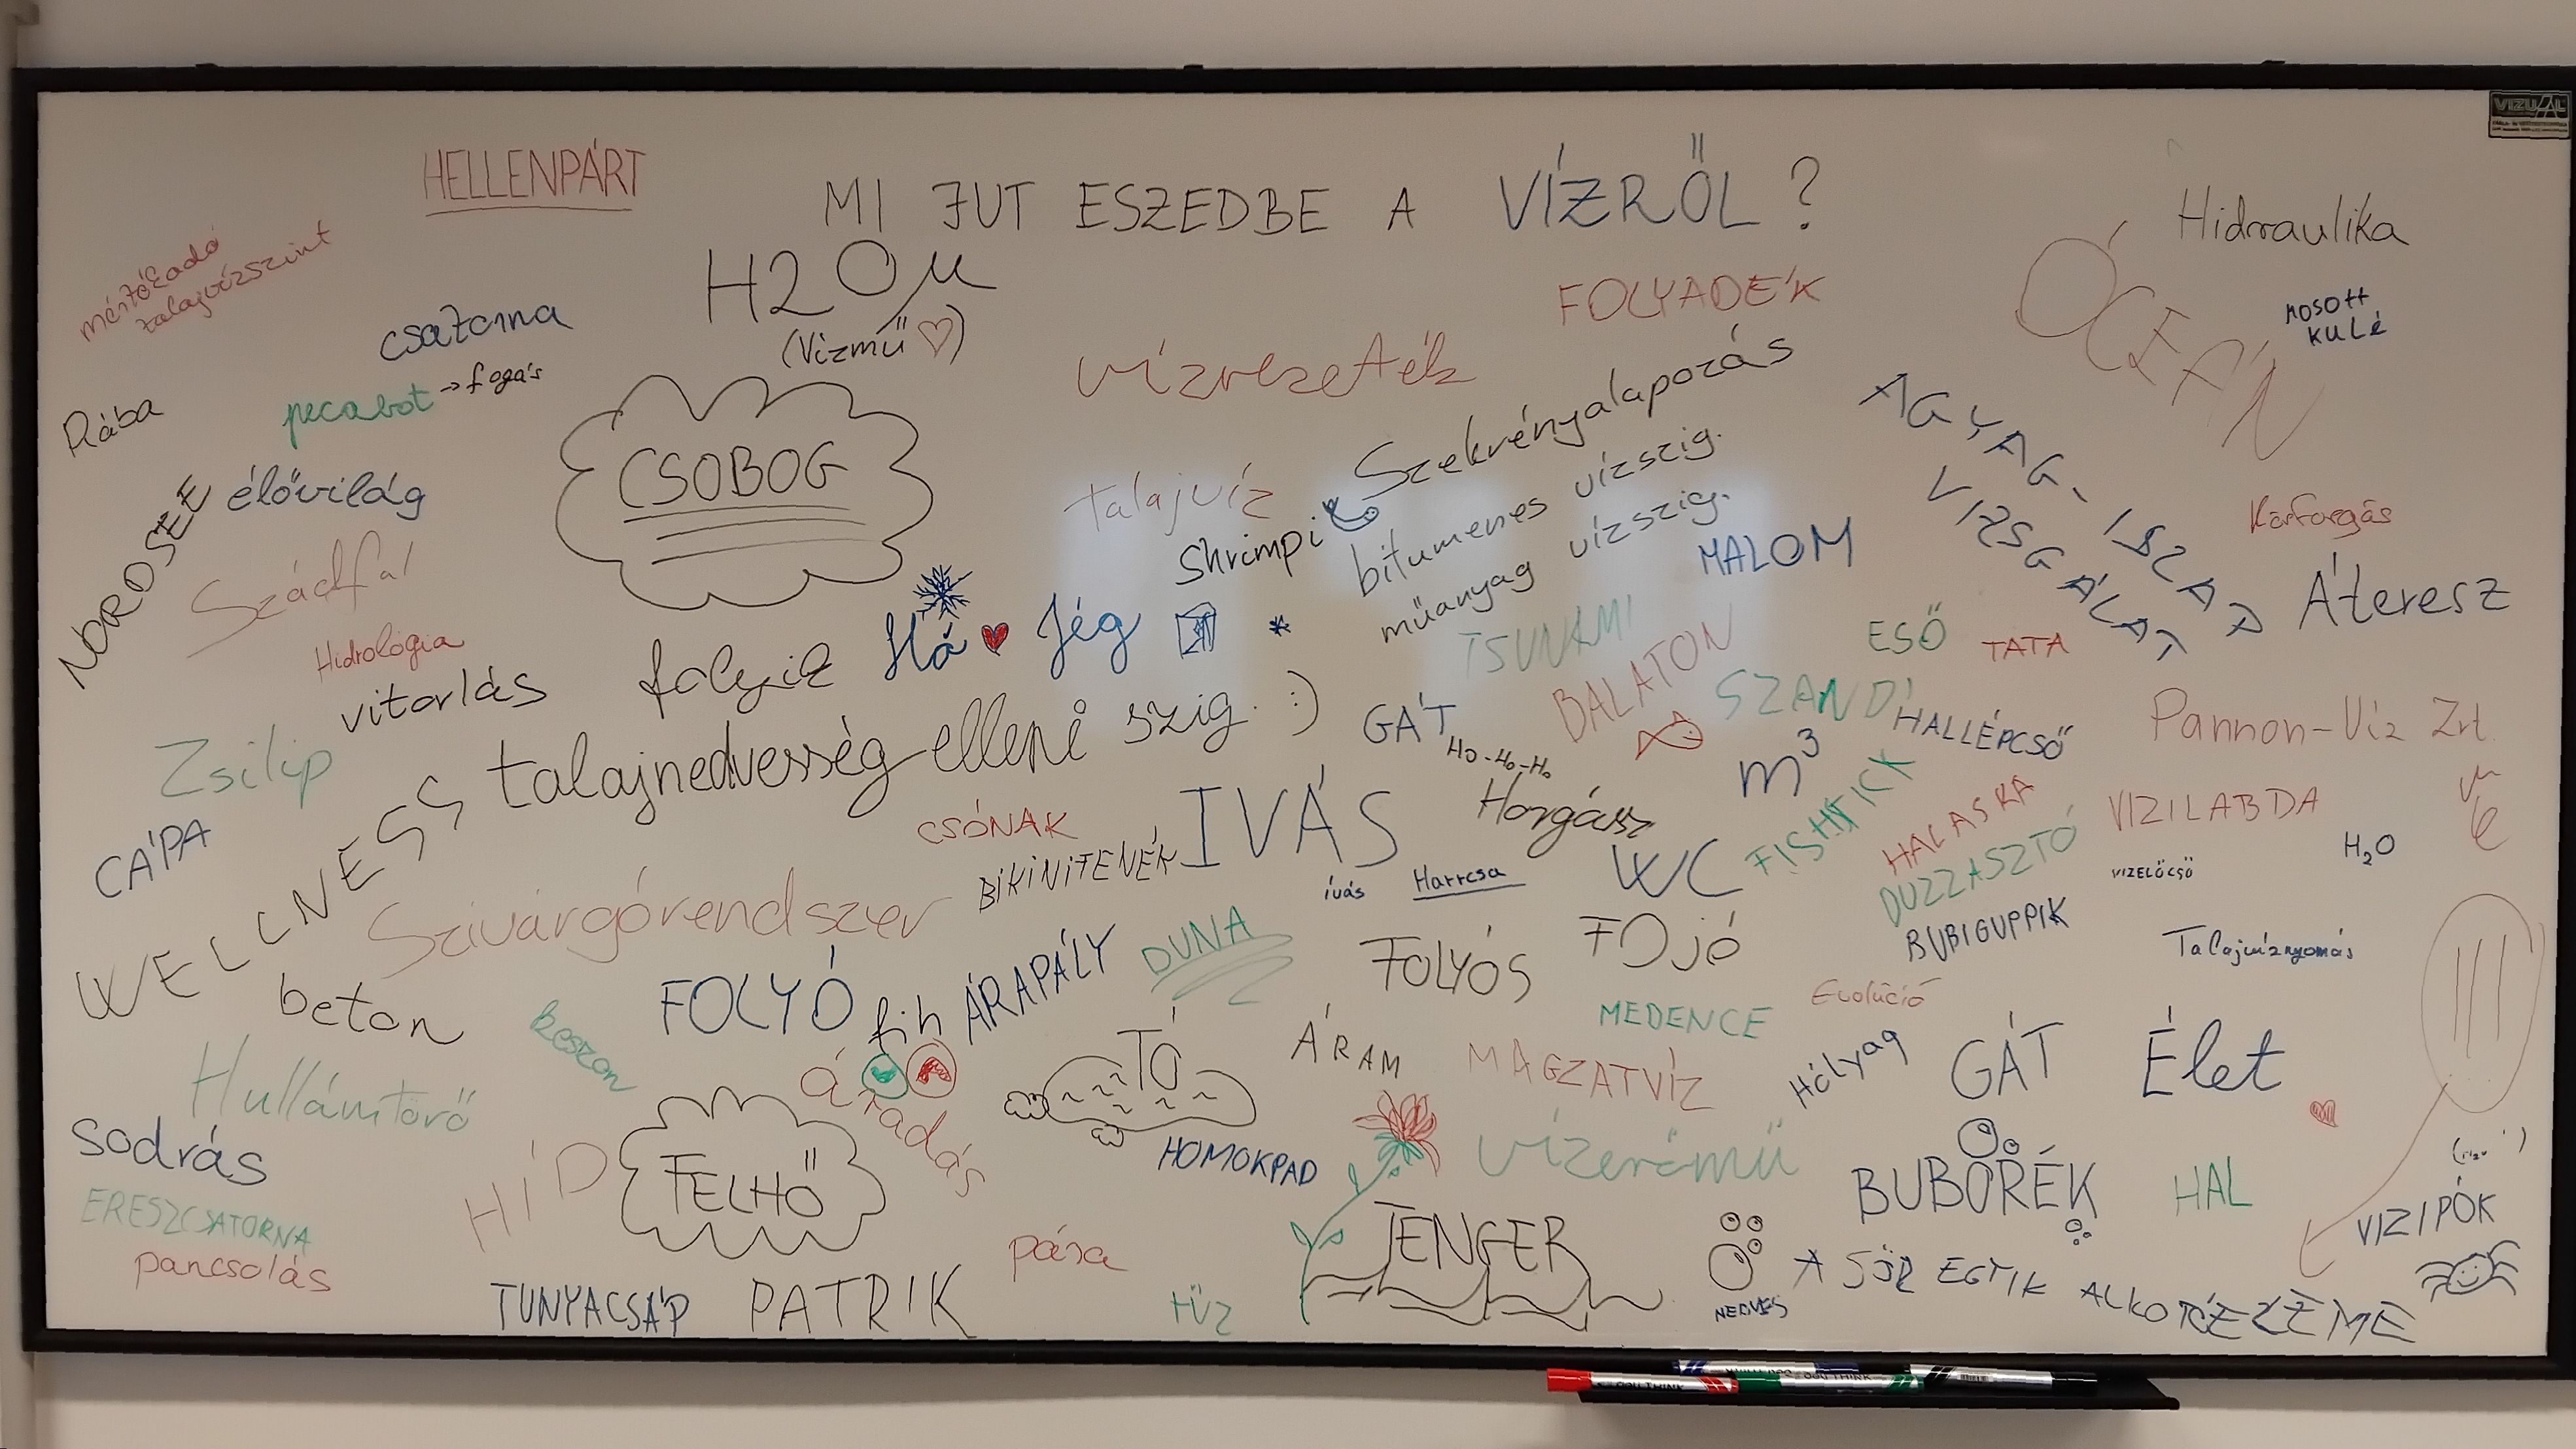 VIZUÁL
HELLENPÁRT
MI JUT ESZEDBE A VÍZRŐL?
Hidraulika
mértékadó
talajvízszint
H2Oμ
(Vízmű)
FOLYADÉK
ÓCEÁN
MOSOTT
KULÉ
csatorna
vízvezeték
pecabot → fogás
Rába
CSOBOG
Szekrényalapozás
AGYAG-ISZAP
VIZSGÁLAT
NORDSEE
élővilág
talajvíz
bitumenes vízszig.
műanyag vízszig.
Shrimpi
MALOM
Körforgás
Szádfal
Hó
Jég
TSUNAMI
BALATON
ESŐ
TATA
Áteresz
Hidrológia
vitorlás
folyik
talajnedvesség elleni szig. :)
SZANDI
GÁT
HO-HO-HO
Horgász
HALLÉPCSŐ
m³
Pannon-Víz Zrt.
Zsilip
CÁPA
WELLNESS
CSÓNAK
BIKINITENÉK
IVÁS
ivás
Harcsa
WC
FISHTICK
HALASKA
DUZZASZTÓ
VIZILABDA
VIZELŐCSŐ
H₂O
Szivárgórendszer
BUBIGUPPIK
beton
keszon
FOLYÓ
fih
ÁRAPÁLY
DUNA
FOLYÓS
FOJÓ
Talajvíznyomás
Evolúció
MEDENCE
Hullámtörő
áradás
TÓ
ÁRAM
MAGZATVÍZ
Hólyag
GÁT
Élet
sodrás
HÍD
FELHŐ
HOMOKPAD
vízerőmű
BUBORÉK
HAL
VIZIPÓK
ERESZCSATORNA
pancsolás
pára
TENGER
TUNYACSÁP
PATRIK
tűz
NEDVES
A SÖR EGYIK ALKOTÓELEME